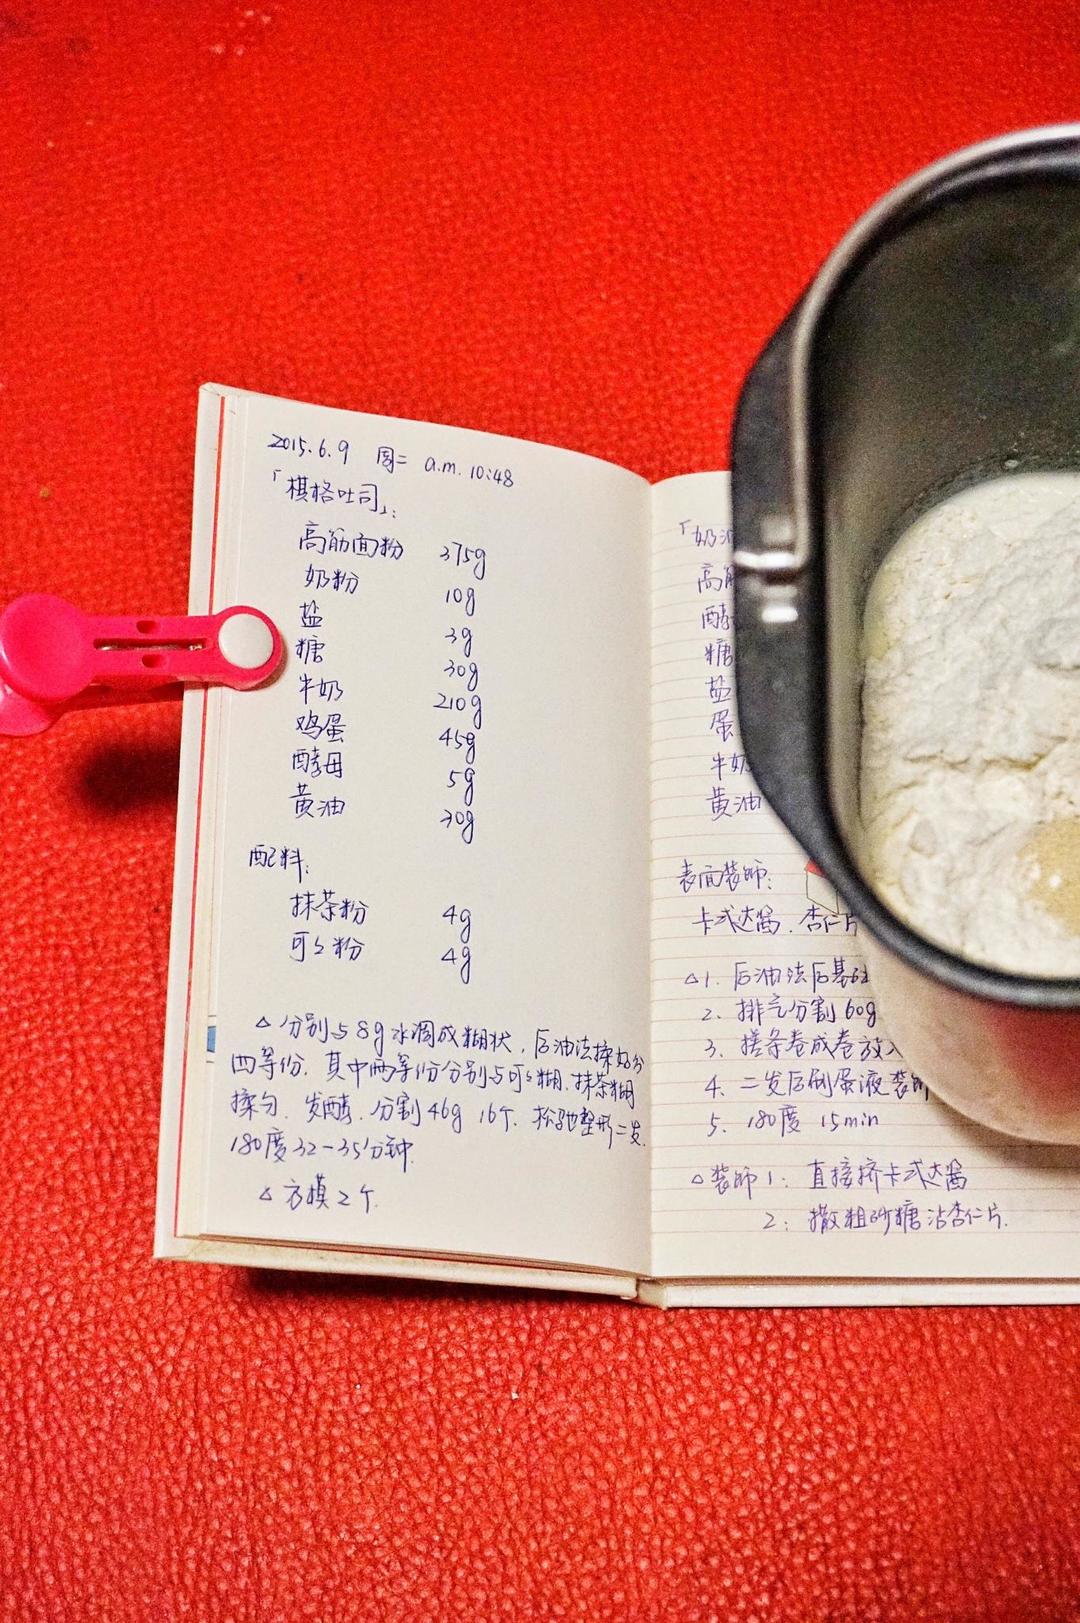 2015.6.9 周二 a.m. 10:48
「棋格吐司」:
高筋面粉 375g
奶粉 10g
盐 3g
糖 30g
牛奶 210g
鸡蛋 45g
酵母 5g
黄油 30g
配料:
抹茶粉 4g
可可粉 4g
△ 分别与8g水调成糊状, 后油法揉好分
四等份. 其中两等份分别与可可糊. 抹茶糊
揉匀. 发酵. 分割46g 16个. 松弛整形二发.
180度32-35分钟.
△ 方模2个.
「奶
高
酵
糖
盐
蛋
牛奶
黄油
表面装饰:
卡式达酱. 杏仁片
△1. 后油法后基础
2. 排气分割60g
3. 搓条卷成卷放入
4. 二发后刷蛋液装饰
5. 180度 15min
△装饰1: 直接挤卡式达酱
2: 撒粗砂糖沾杏仁片.